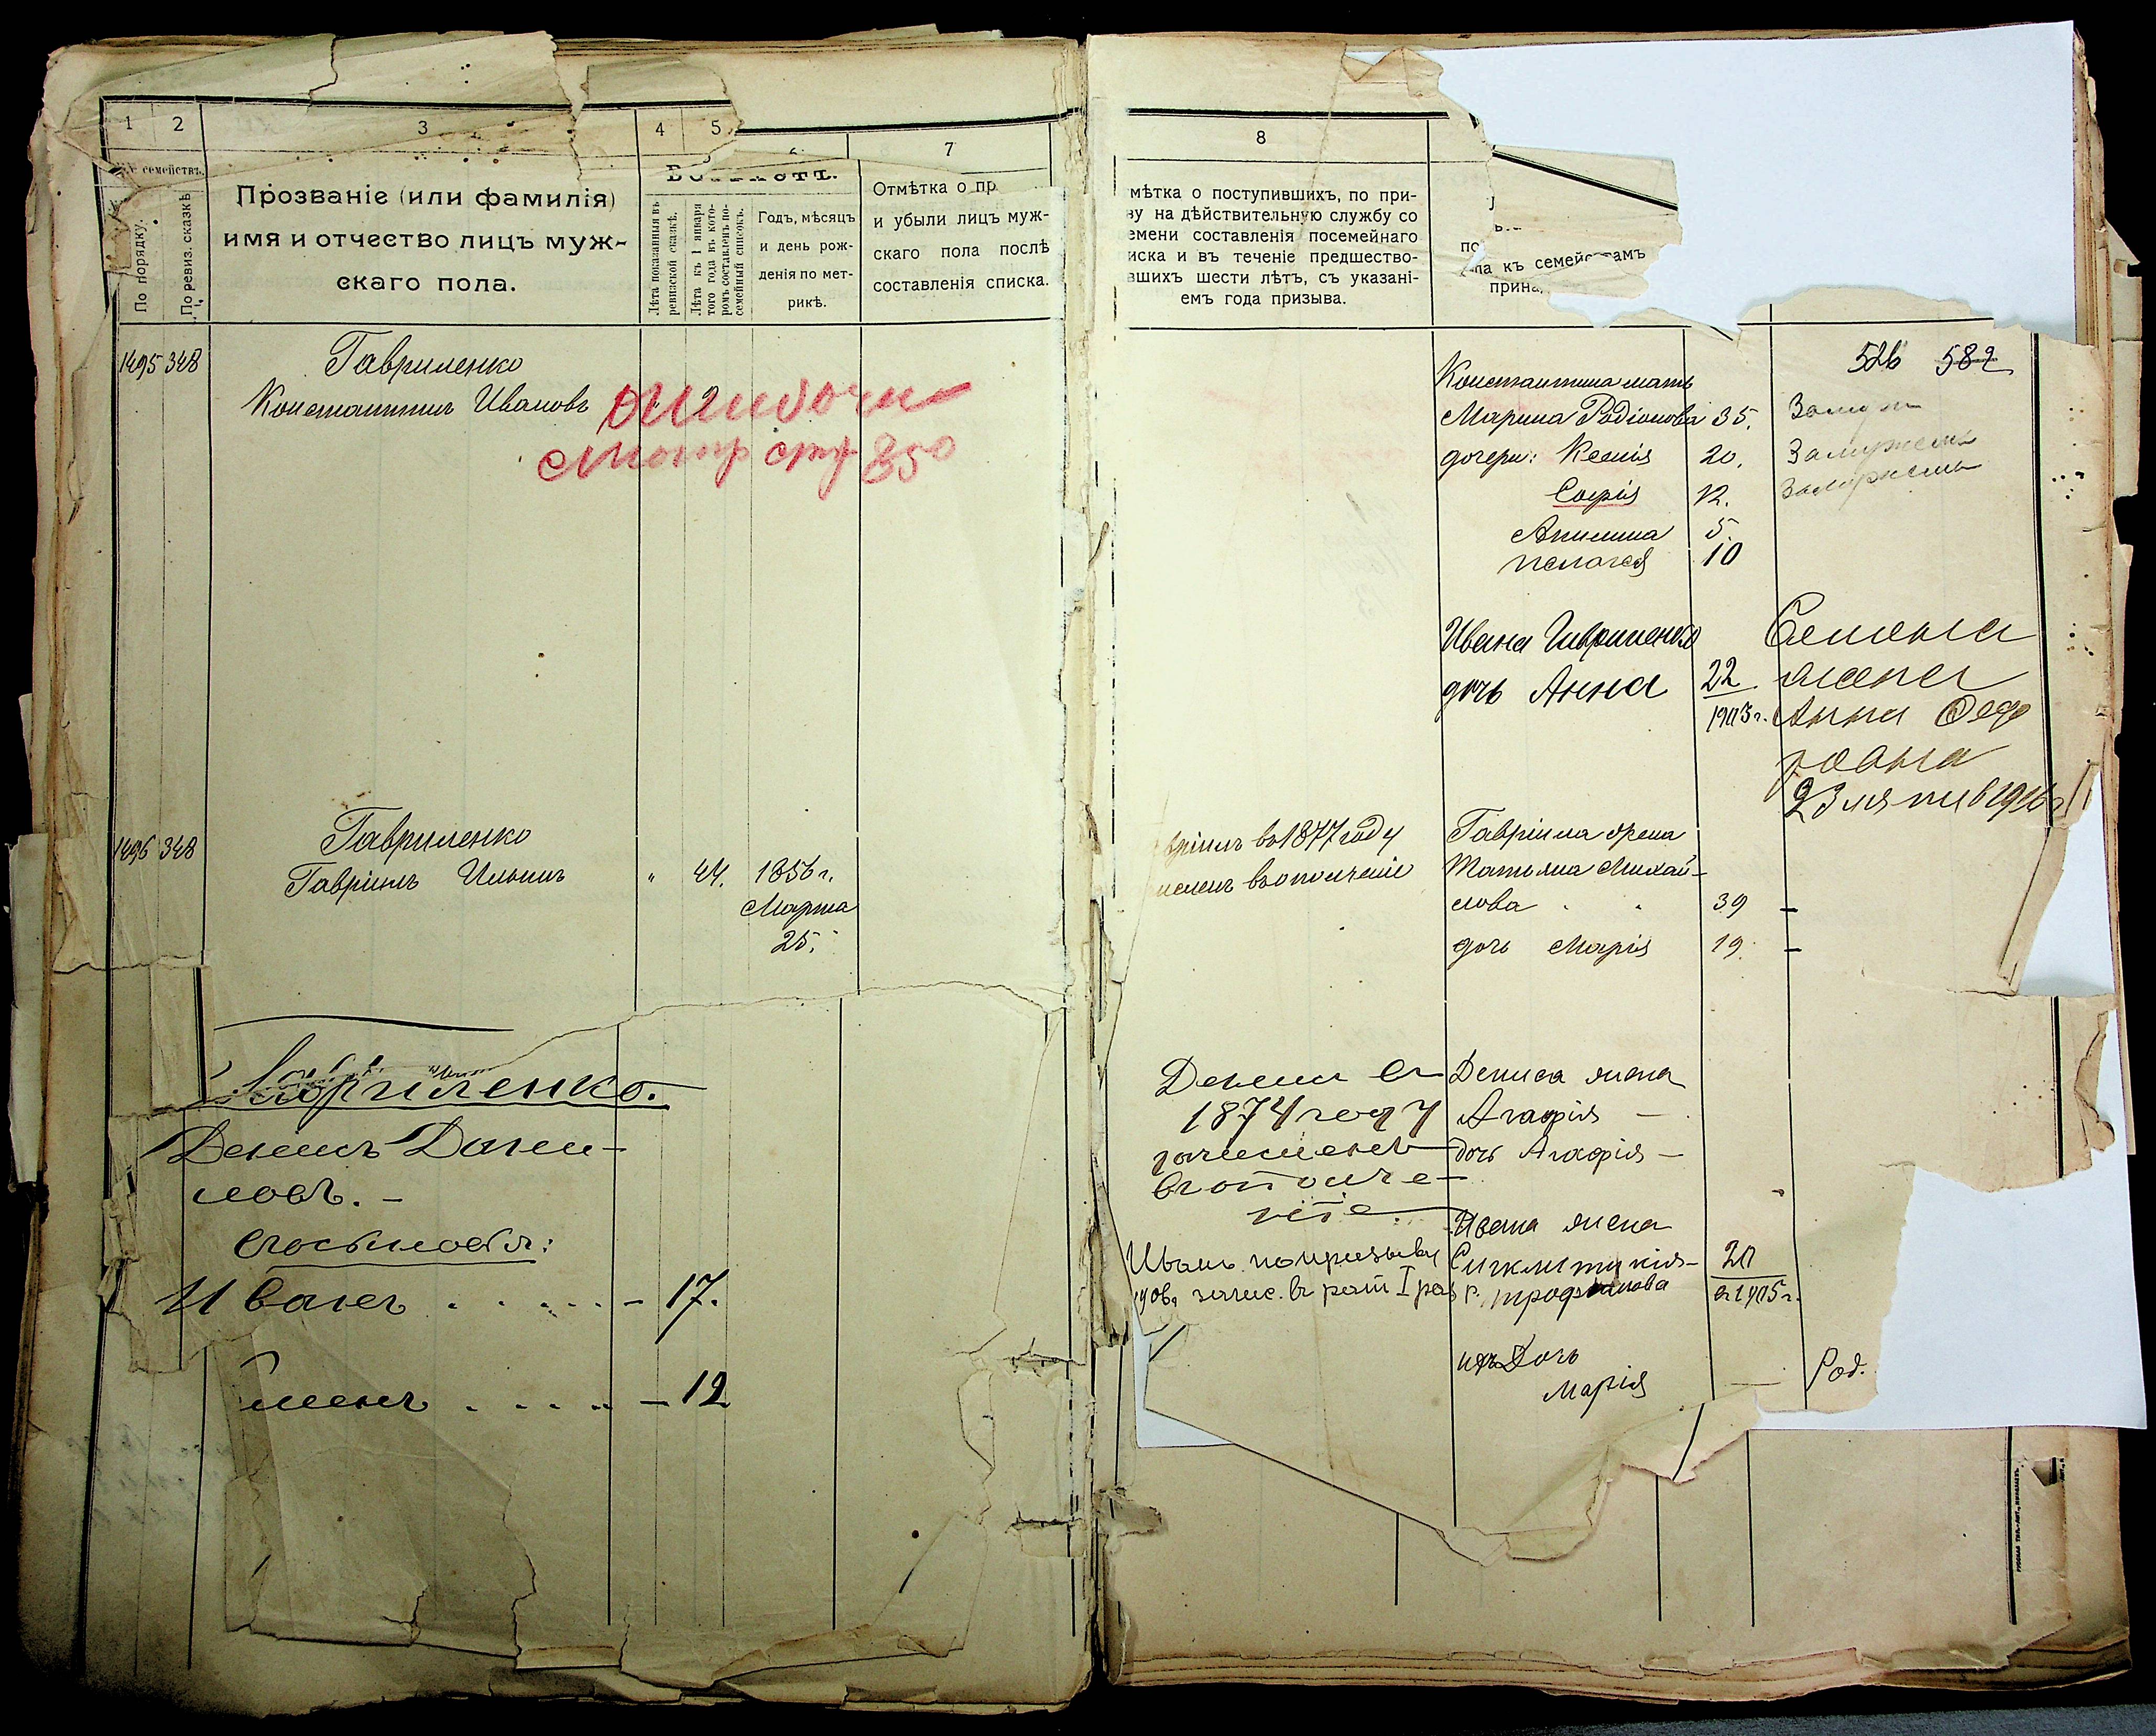 1 2 3 4 5 6 7
№ семействъ.
По порядку.
По ревиз. сказкѣ
Прозваніе (или фамилія)
имя и отчество лицъ муж-
скаго пола.
Лѣта показанныя въ
ревизской сказкѣ.
Лѣта къ 1 января
того года въ кото-
ромъ составленъ по-
семейный списокъ.
Годъ, мѣсяцъ
и день рож-
денія по мет-
рикѣ.
Отмѣтка о пр
и убыли лицъ муж-
скаго пола послѣ
составленія списка.
1495 348 Гавриленко
Константинъ Ивановъ 2
смотр стр 850
1496 348 Гавриленко
Гавріилъ Ильинъ " 44. 1856 г.
Марта
25.
Гавриленко.
Денисъ Дани-
ловъ. –
Сыновья:
Иванъ . . . . . – 17.
Семенъ . . . . . – 12
8
мѣтка о поступившихъ, по при-
ву на дѣйствительную службу со
емени составленія посемейнаго
иска и въ теченіе предшество-
вшихъ шести лѣтъ, съ указані-
емъ года призыва.
па къ семействамъ
прина
526 582
Константина мать
Марина Родіонова 35. Замуж
дочери: Ксенія 20. Замужемъ
Софія 12. Замужемъ
Акилина 5.
Пелагея 10
Ивана Гавриленко
дочь Анна 22
1903 г.
Семена
жена
Анна Фед
рована
23 лят в 1916 г
вріилъ въ 1877 году
численъ въ ополченіе
Гавріила жена
Татьяна Михай-
лова . . 39 –
дочь Марія 19. –
Денисъ въ
1874 году
зачисленъ
въ ополче-
ніе
Дениса жена
Агафія –
дочь Агафія –
Иванъ по призыву
1906 г. зачис. въ рат I раз р.
Ивана жена
Сигклитикія – 20
Трофимова въ 1905 г.
ихъ Дочь
Марія — Род.